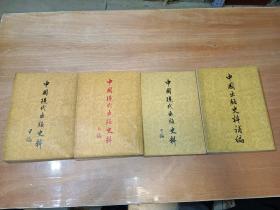 中國現代出版史料
甲編
中國現代出版史料
乙編
中國現代出版史料
編
中國出版史料補編